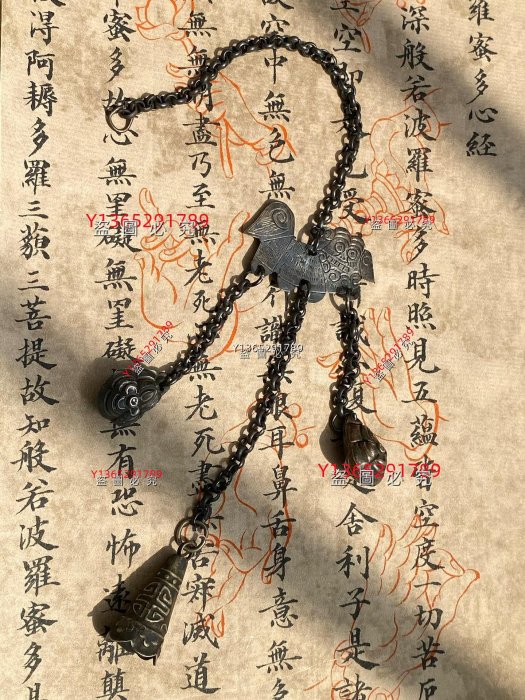 羅蜜多心經
深般若波羅蜜多時照見五蘊皆空度一切苦厄
空即 受 識 復 舍利子是諸
空中無色無 識 眼耳鼻舌身意無
無無明盡乃至無老死 無老死盡 寂滅道
蜜多 心無罣礙無罣礙 無有恐怖遠離顛
得阿耨多羅三藐三菩提故知般若波羅蜜多是
Y1365291799
盜圖必究
Y1365291799
盜圖必究
Y1365291799
盜圖必究
Y1365291799
盜圖必究
Y1365291799
盜圖必究
Y1365291799
盜圖必究
Y1365291799
盜圖必究